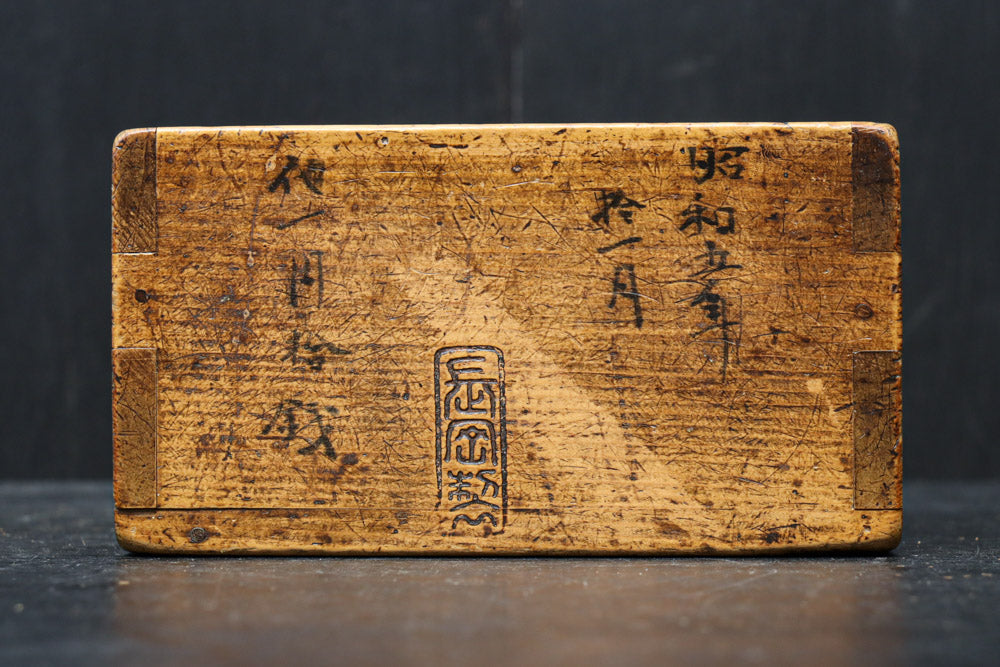 昭和五年
拾一月
代一円拾銭